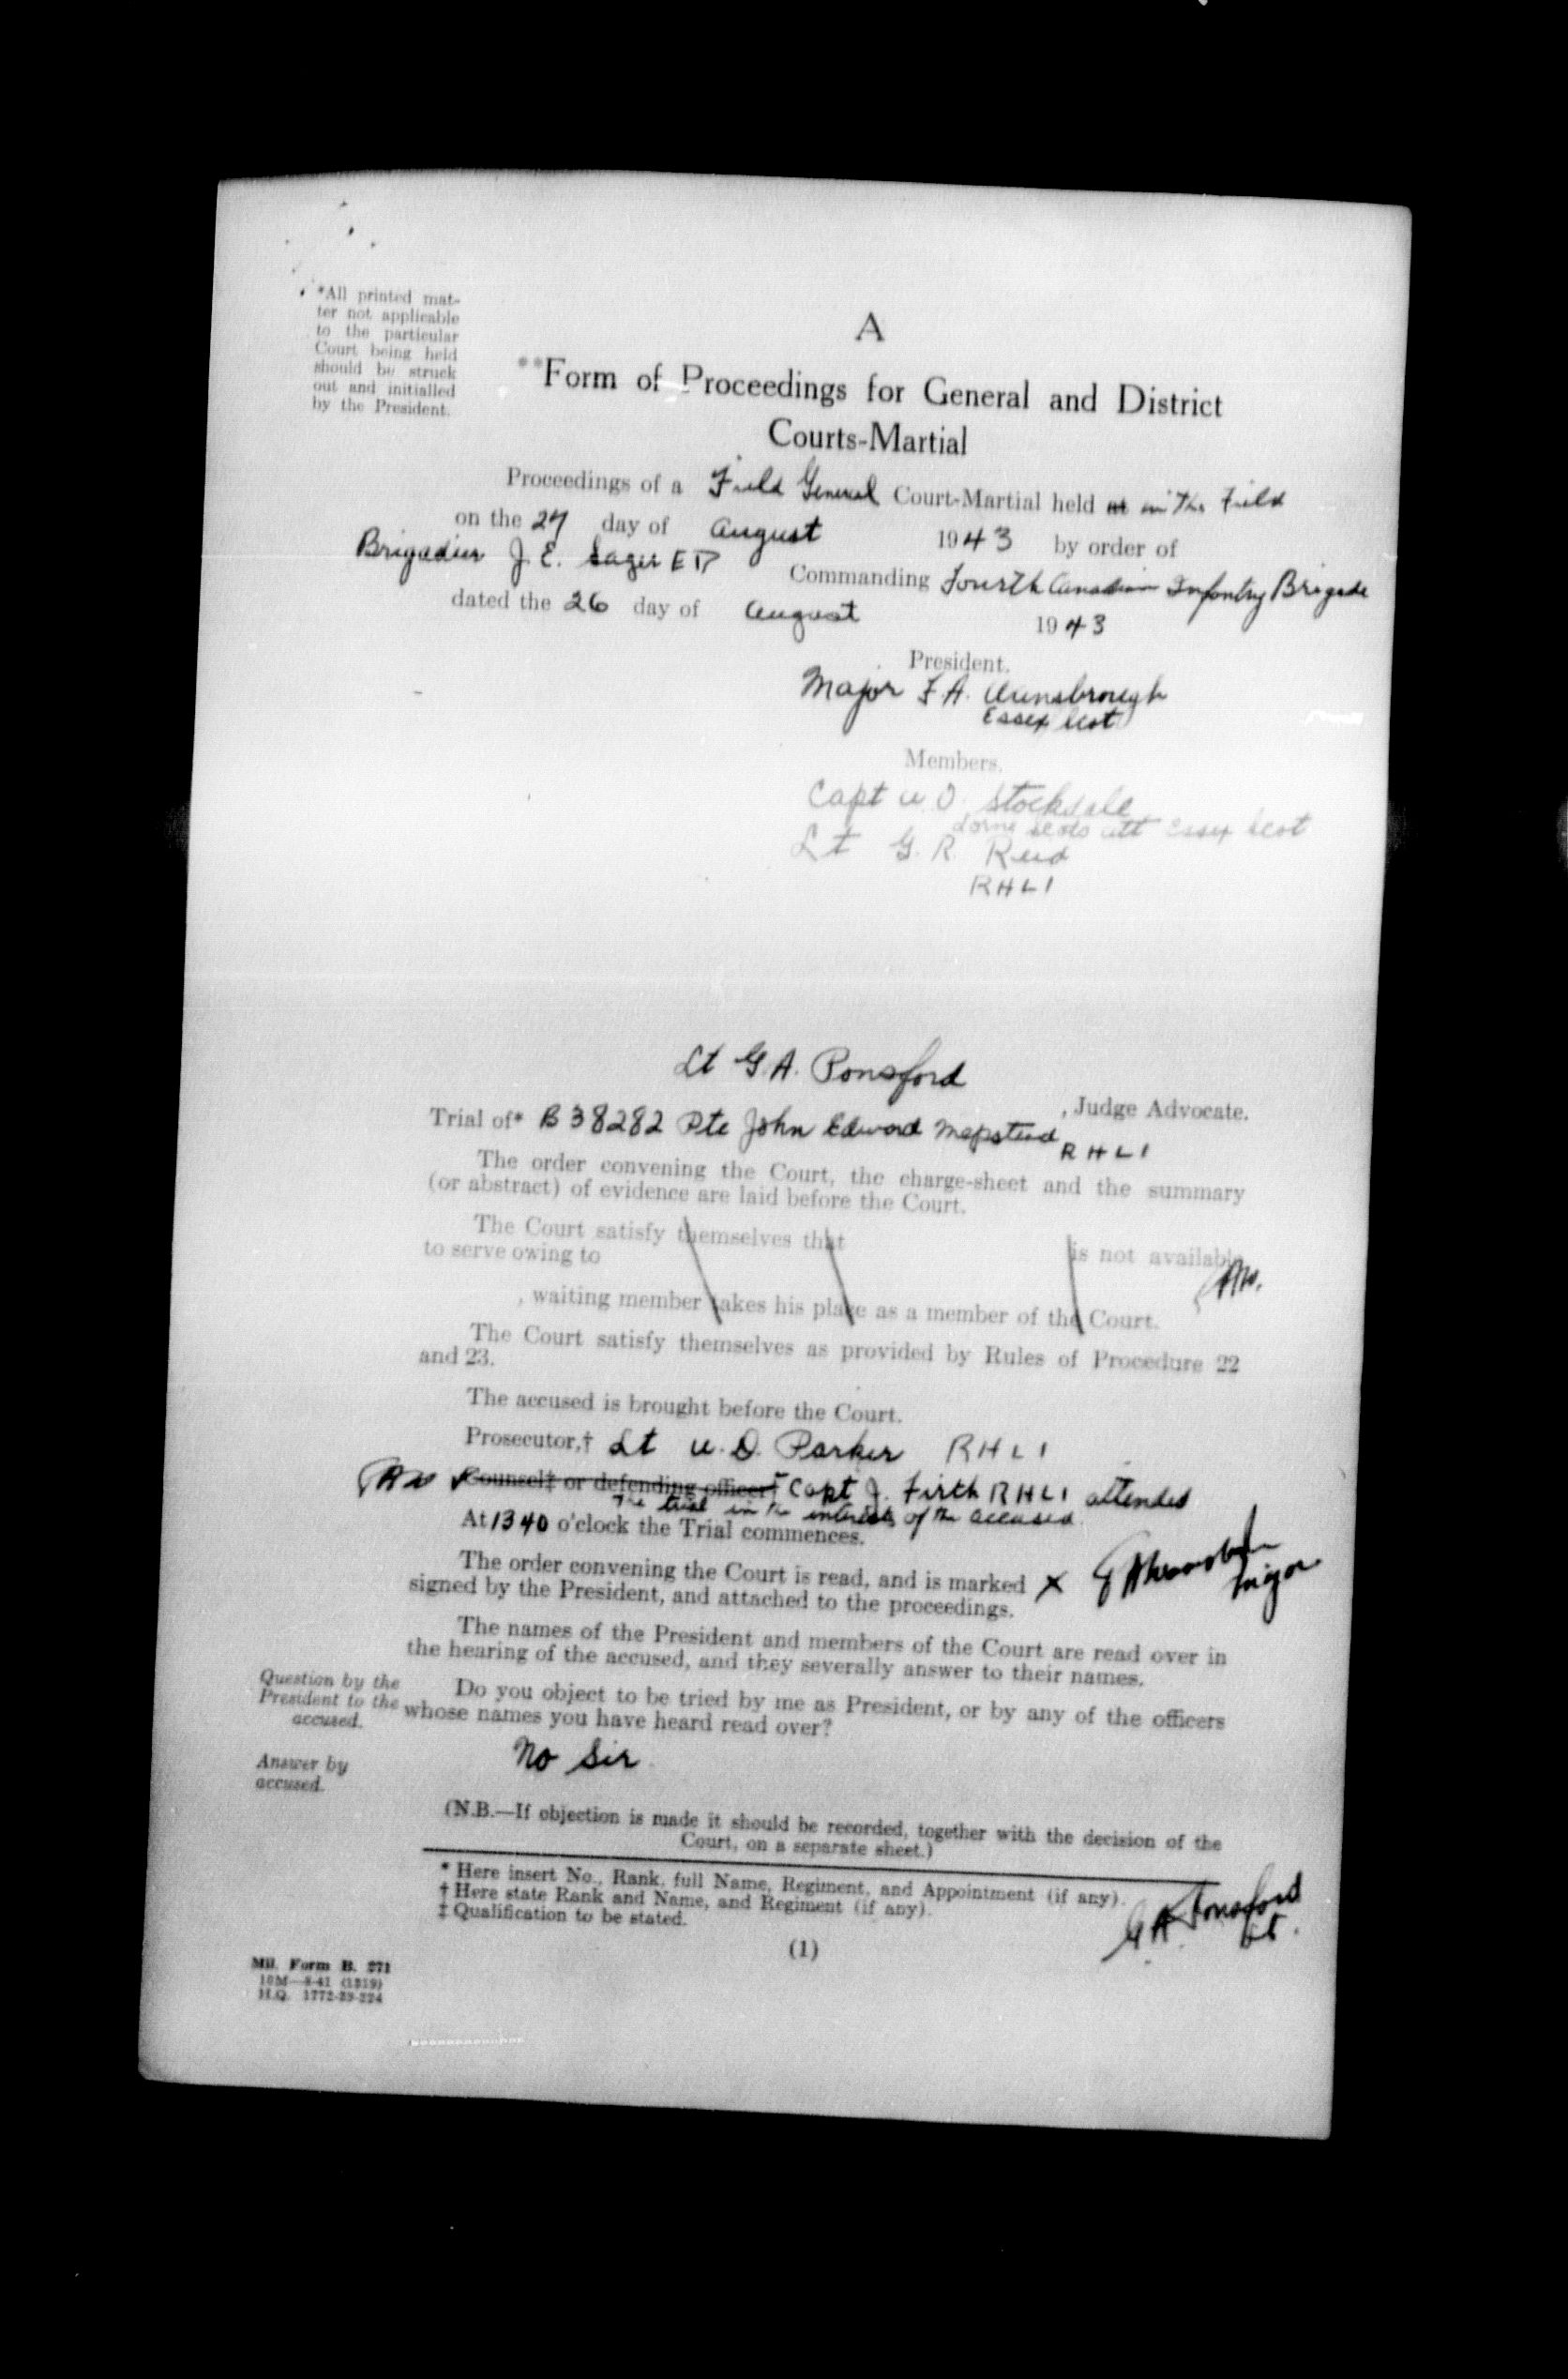 *All printed mat-
ter not applicable
to the particular
Court being held
should be struck
out and initialled
by the President.
A
**Form of Proceedings for General and District
Courts-Martial
Proceedings of a Field General Court-Martial held at in The Field
on the 27 day of August 1943 by order of
Brigadier J. E. Sager E D Commanding Fourth Canadian Infantry Brigade
dated the 26 day of August 1943
President.
Major F. A.
Essex Scot
Members.
Capt W. D. Stockdale
Lorne Scots att Essex Scot
Lt G. R. Reid
RHLI
Lt G. A. Ponsford
, Judge Advocate.
Trial of* B 38282 Pte John Edward Mepstead RHLI
The order convening the Court, the charge-sheet and the summary
(or abstract) of evidence are laid before the Court.
The Court satisfy themselves that is not available
to serve owing to
, waiting member takes his place as a member of the Court.
The Court satisfy themselves as provided by Rules of Procedure 22
and 23.
The accused is brought before the Court.
Prosecutor,† Lt W. D. Parker RHLI
Counsel‡ or defending officer† Capt J. Firth RHLI attended
The trial in the interests of the accused
At 1340 o'clock the Trial commences.
The order convening the Court is read, and is marked X
Major
signed by the President, and attached to the proceedings.
The names of the President and members of the Court are read over in
the hearing of the accused, and they severally answer to their names.
Question by the
President to the
accused.
Do you object to be tried by me as President, or by any of the officers
whose names you have heard read over?
Answer by
accused.
No Sir
(N.B.—If objection is made it should be recorded, together with the decision of the
Court, on a separate sheet.)
* Here insert No., Rank, full Name, Regiment, and Appointment (if any).
† Here state Rank and Name, and Regiment (if any).
‡ Qualification to be stated.
G A Ponsford
Lt.
(1)
Mil. Form B. 271
10M—8-41 (1319)
H.Q. 1772-39-224